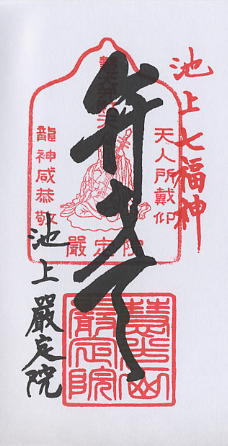 池上七福神
弁才天
天人所戴仰
龍神咸恭敬
嚴定院
池上嚴定院
嚴定院